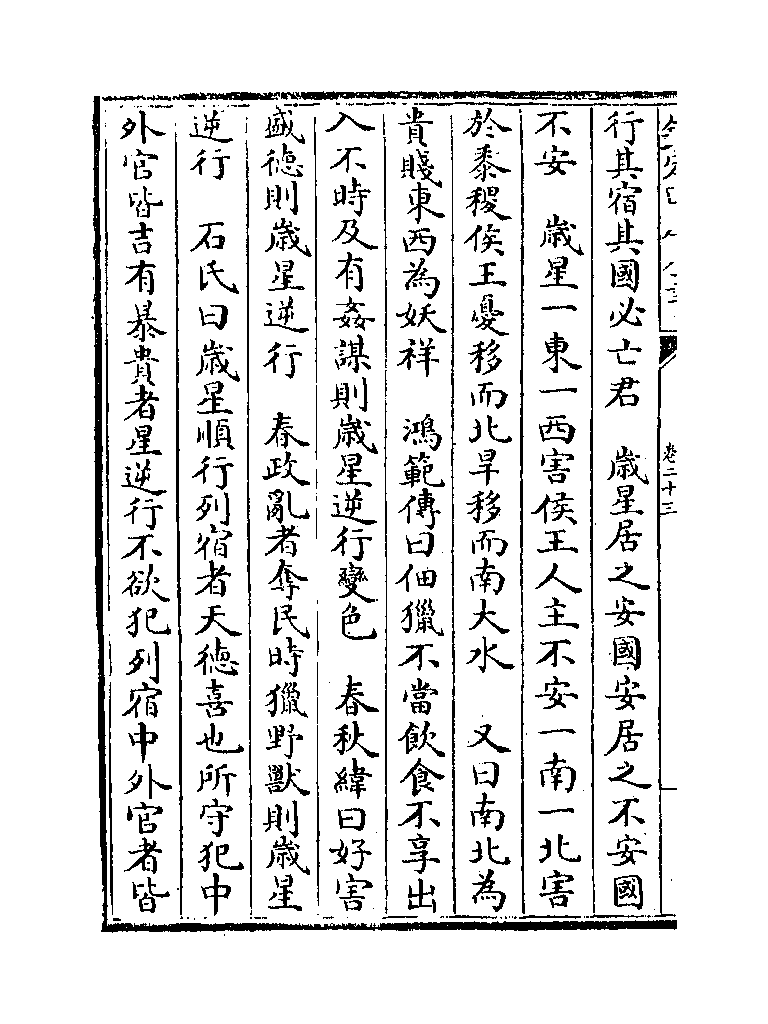 行其宿其國必亡君　歲星居之安國安居之不安國
不安　歲星一東一西害侯王人主不安一南一北害
於黍稷侯王憂移而北旱移而南大水　又曰南北為
貴賤東西為妖祥　鴻範傳曰佃獵不當飲食不享出
入不時及有姦謀則歲星逆行變色　春秋緯曰好害
盛德則歲星逆行　春政亂者奪民時獵野獸則歲星
逆行　石氏曰歲星順行列宿者天德喜也所守犯中
外官皆吉有暴貴者星逆行不欲犯列宿中外官者皆
卷二十三